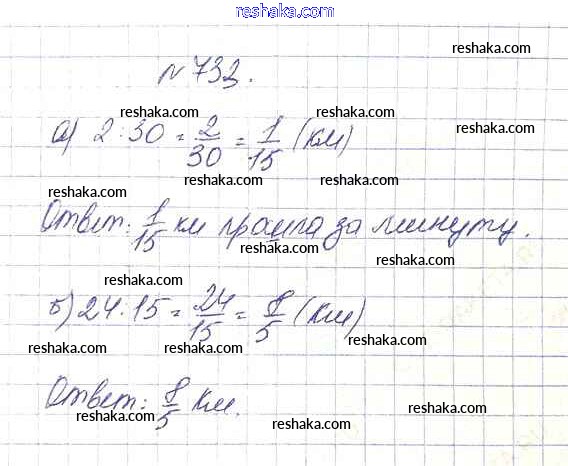 reshaka.com
reshaka.com
№733.
reshaka.com reshaka.com reshaka.com
а) 2:30 = 2/30 = 1/15 (км)
reshaka.com reshaka.com reshaka.com
Ответ: 1/15 км прошла за минуту.
reshaka.com reshaka.com
reshaka.com
б) 24:15 = 24/15 = 8/5 (км)
reshaka.com
reshaka.com reshaka.com reshaka.com
Ответ: 8/5 км.
reshaka.com
reshaka.com
reshaka.com reshaka.com